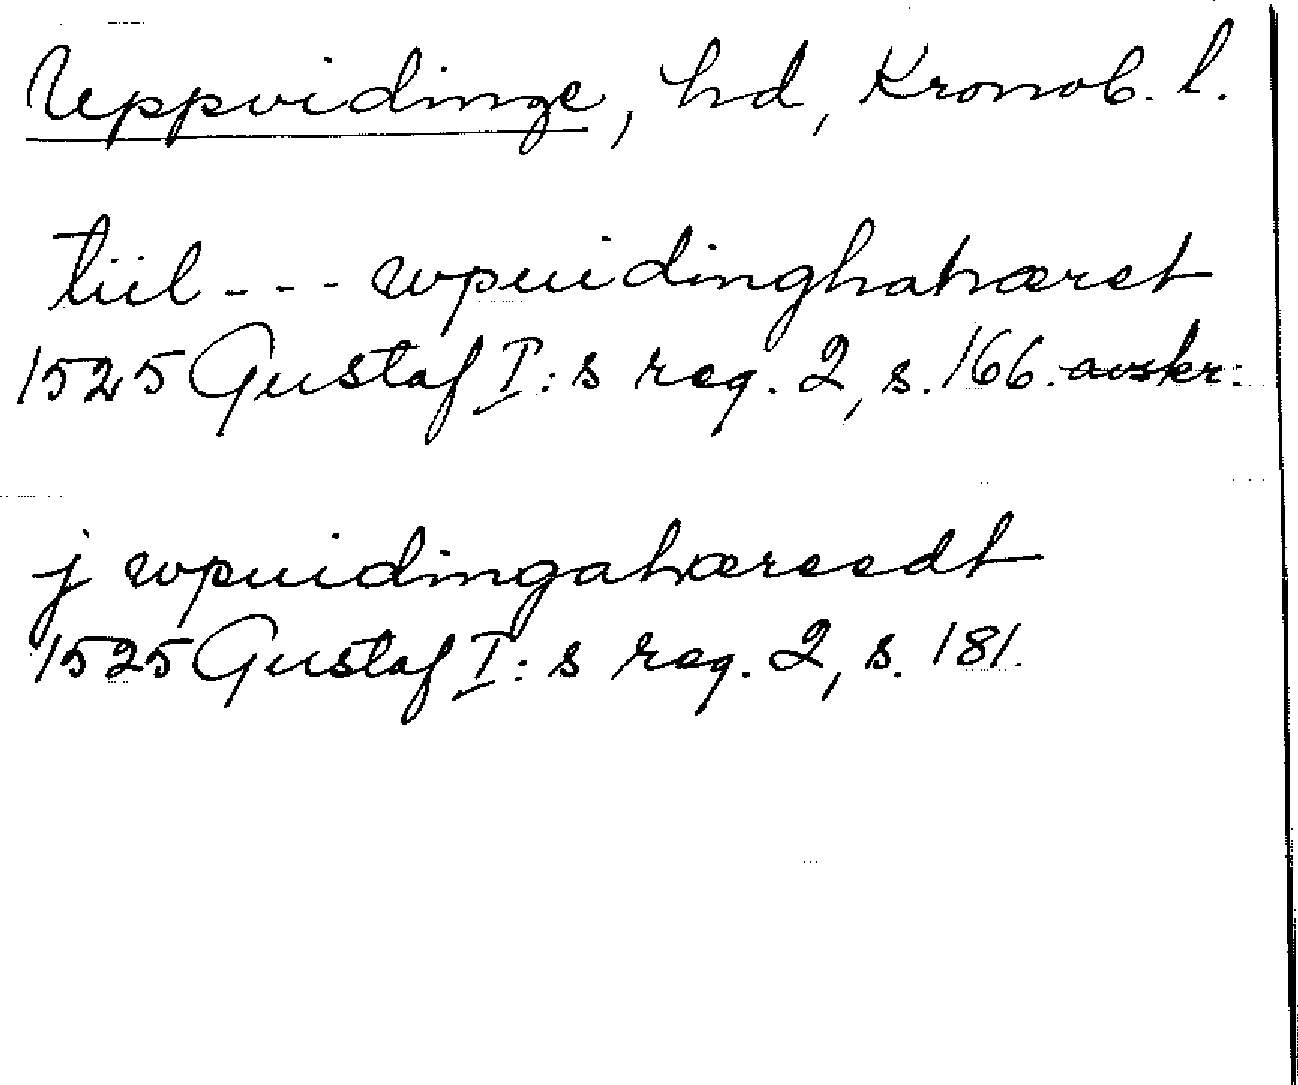 Uppvidinge, hd, Kronob. l.
tiil - - - wpuidinghahæret
1525 Gustaf I:s reg. 2, s. 166. avskr.
j wpuidingahæreedt
1525 Gustaf I:s reg. 2, s. 181.